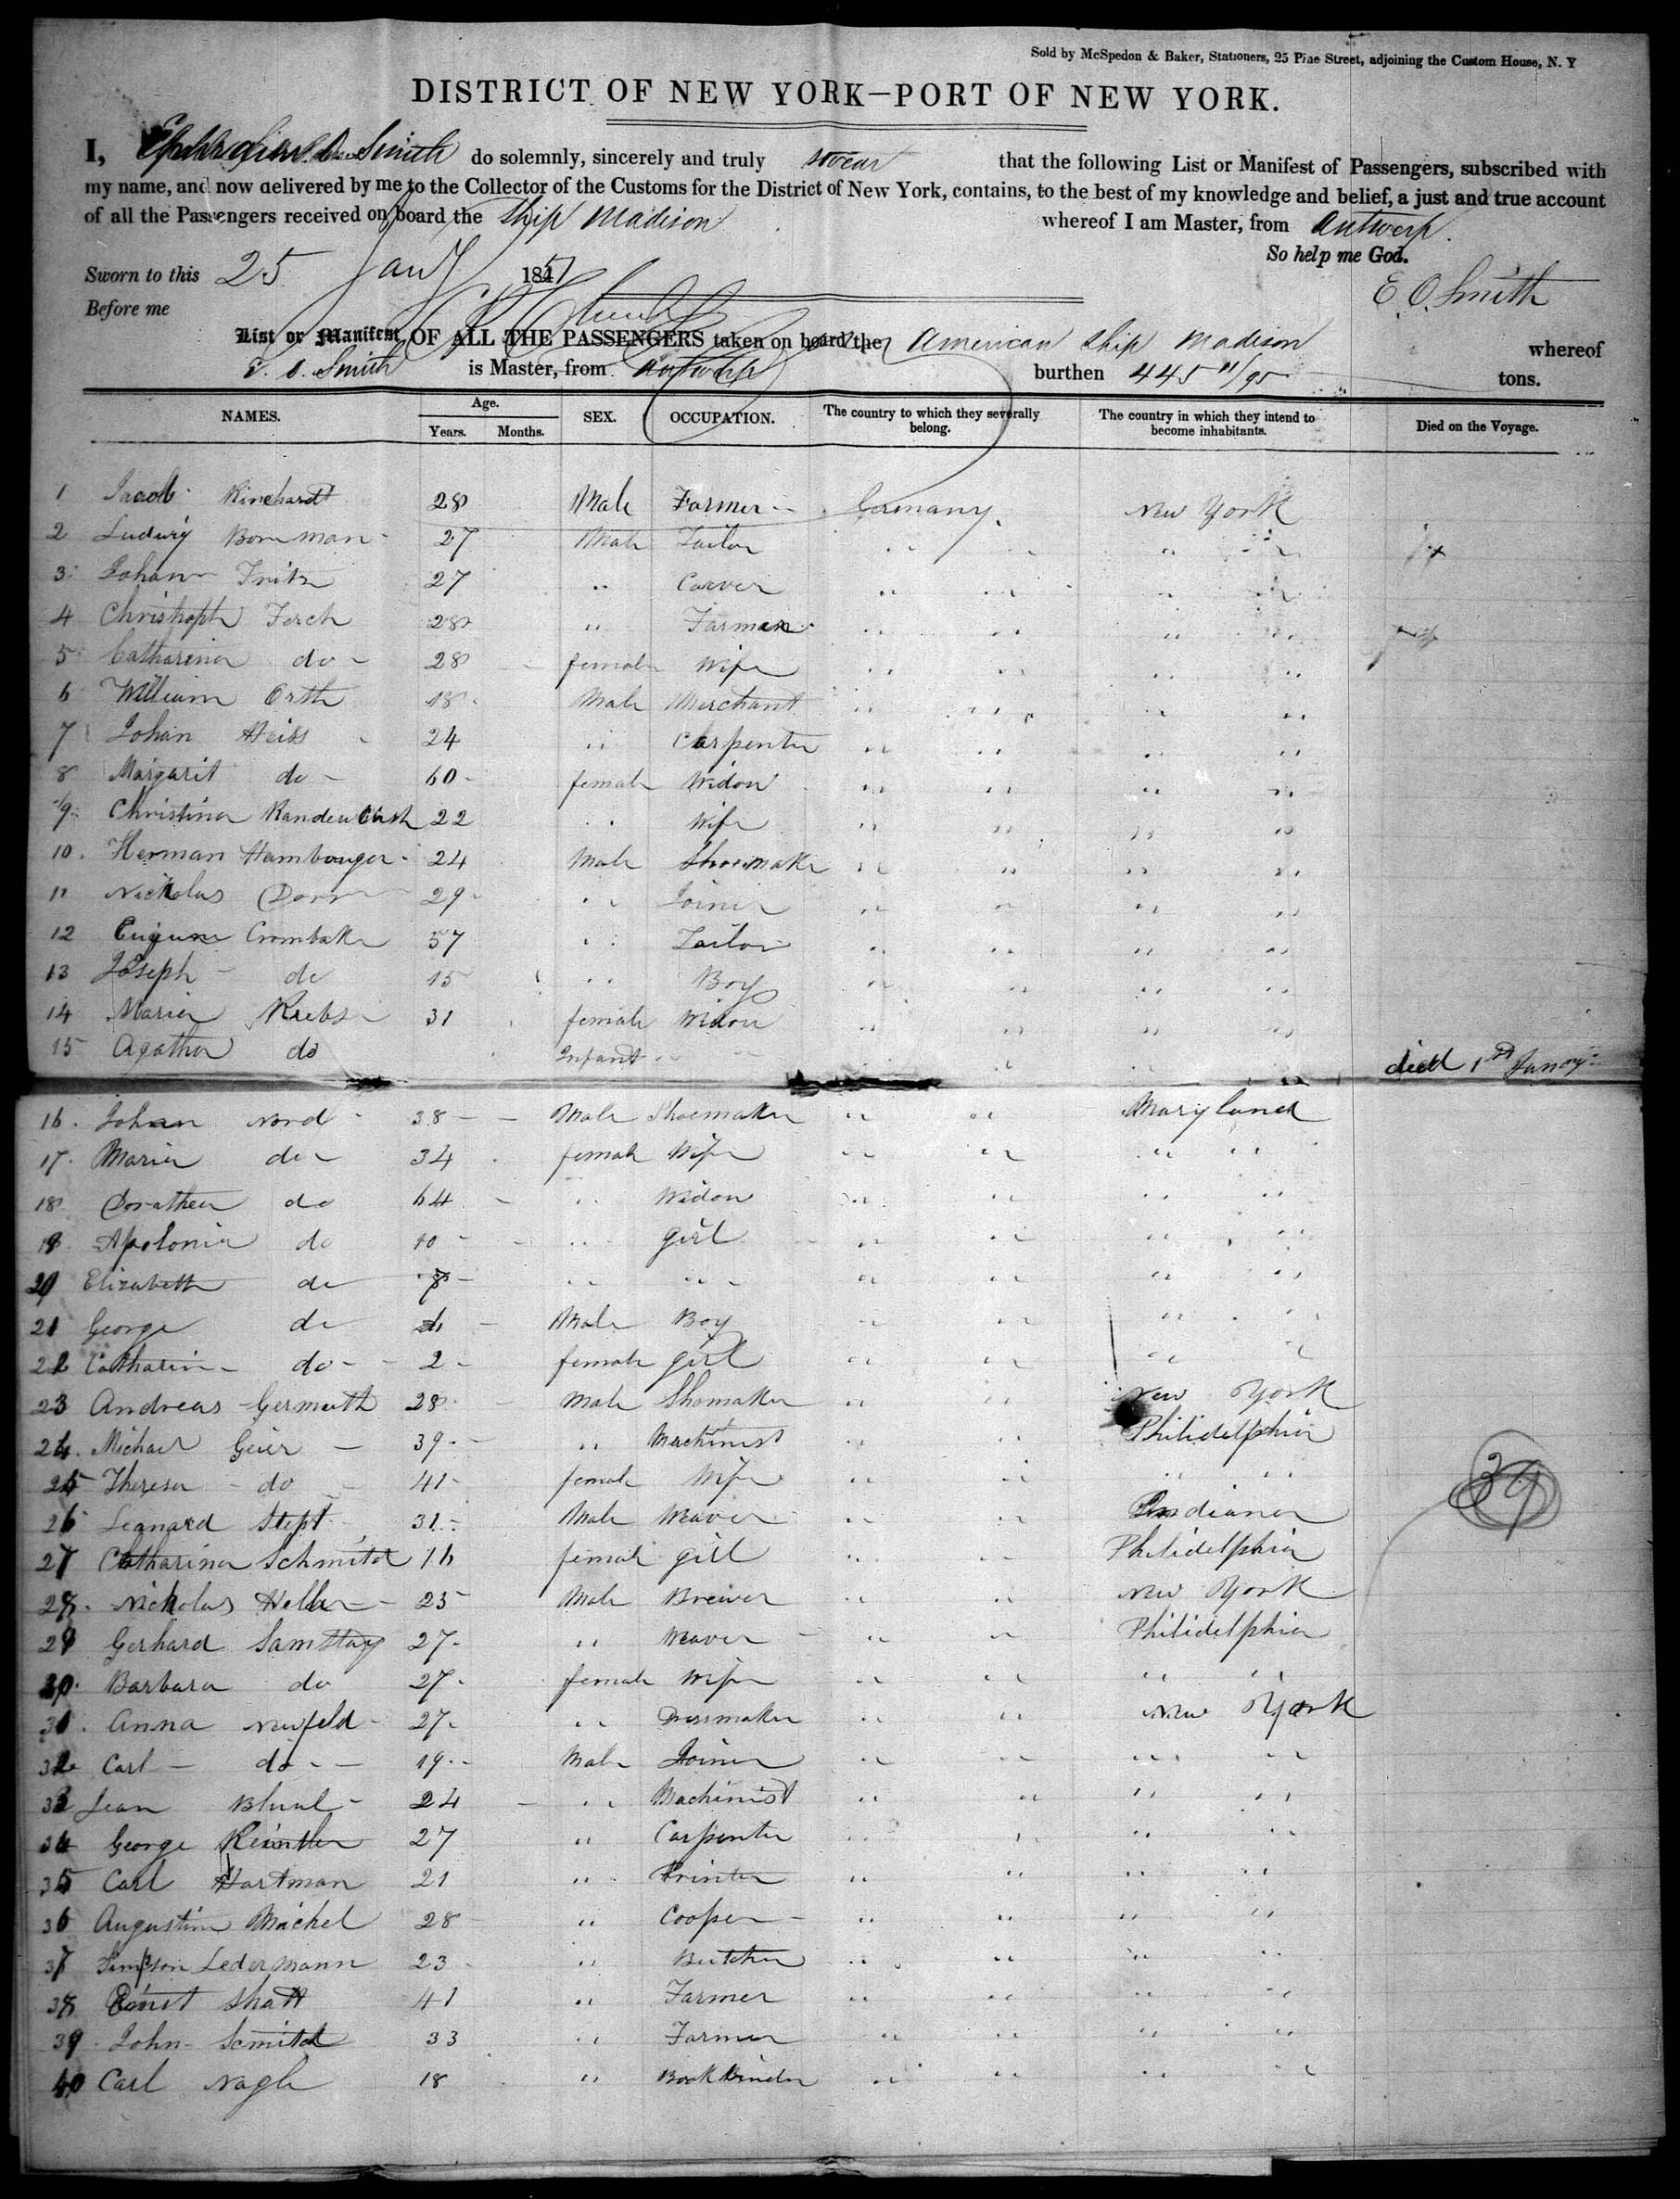 Sold by McSpedon & Baker, Stationers, 25 Pine Street, adjoining the Custom House, N. Y
DISTRICT OF NEW YORK—PORT OF NEW YORK.
I, Smith do solemnly, sincerely and truly swear that the following List or Manifest of Passengers, subscribed with
my name, and now delivered by me to the Collector of the Customs for the District of New York, contains, to the best of my knowledge and belief, a just and true account
of all the Passengers received on board the Ship Madison whereof I am Master, from Antwerp.
So help me God.
Sworn to this 25 Jany 1851
E. O. Smith
Before me
List or Manifest OF ALL THE PASSENGERS taken on board the American Ship Madison whereof
E. O. Smith is Master, from Antwerp burthen 445 11/95 tons.
NAMES. Age. Years. Months. SEX. OCCUPATION. The country to which they severally belong. The country in which they intend to become inhabitants. Died on the Voyage.
1 Jacob Rinehardt 28 Male Farmer Germany New York
2 Ludwig Bornman 27 Male Tailor " " " "
3 Johann Fritz 27 " Carver " " " "
4 Christoph Ferch 28 " Farmer " " " "
5 Catharina do 28 female Wife " " " "
6 William Orth 18 Male Merchant " " " "
7 Johan Heiss 24 " Carpenter " " " "
8 Margarit do 60 female Widow " " " "
9 Christina 22 " Wife " " " "
10 Herman Hambouger 24 Male Shoemaker " " " "
11 Nickolus Dorr 29 " Joiner " " " "
12 Eugune Crombake 57 " Tailor " " " "
13 Joseph do 15 " Boy " " " "
14 Maria Krebs 31 female Widow " " " "
15 Agatha do Infant " " " " died 1st Jany
16 Johan Nord 38 Male Shoemaker " " Maryland
17 Maria do 34 female Wife " " " "
18 Dorathea do 64 " Widow " " " "
19 Apolonia do 10 " girl " " " "
20 Elizabeth do 8 " " " " " "
21 George do Male Boy " " " "
22 Catharin do 2 female girl " " " "
23 Andreas Germuth 28 Male Shomaker " " New York
24 Michael Geier 39 " Machinist " " Philidelphia
25 Theresa do 41 female Wife " " " "
26 Leonard Stept 31 Male Weaver " " Indiana
27 Catharina Schmitd 16 female girl " " Philidelphia
28 Nickolus Heller 25 Male Brewer " " New York
29 Gerhard Samstag 27 " Weaver " " Philidelphia
30 Barbara do 27 female Wife " " " "
31 Anna Neufeld 27 " Dressmaker " " New York
32 Carl do 19 Male Joiner " " " "
33 Jean 24 " Machinist " " " "
34 George 27 " Carpenter " " " "
35 Carl Hartman 21 " Printer " " " "
36 Augustin Michel 28 " Cooper " " " "
37 Simpson Ledermann 23 " Butcher " " " "
38 Ernst Shatt 41 " Farmer " " " "
39 John Scmitd 33 " Farmer " " " "
40 Carl Nagle 18 " Bookbinder " " " "
39